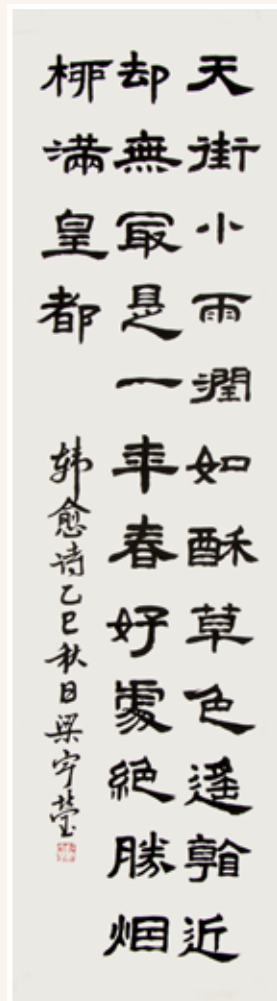 天街小雨潤如酥草色遙看近
却無最是一年春好處絕勝烟
柳滿皇都
韩愈诗乙巳秋日梁宇莹